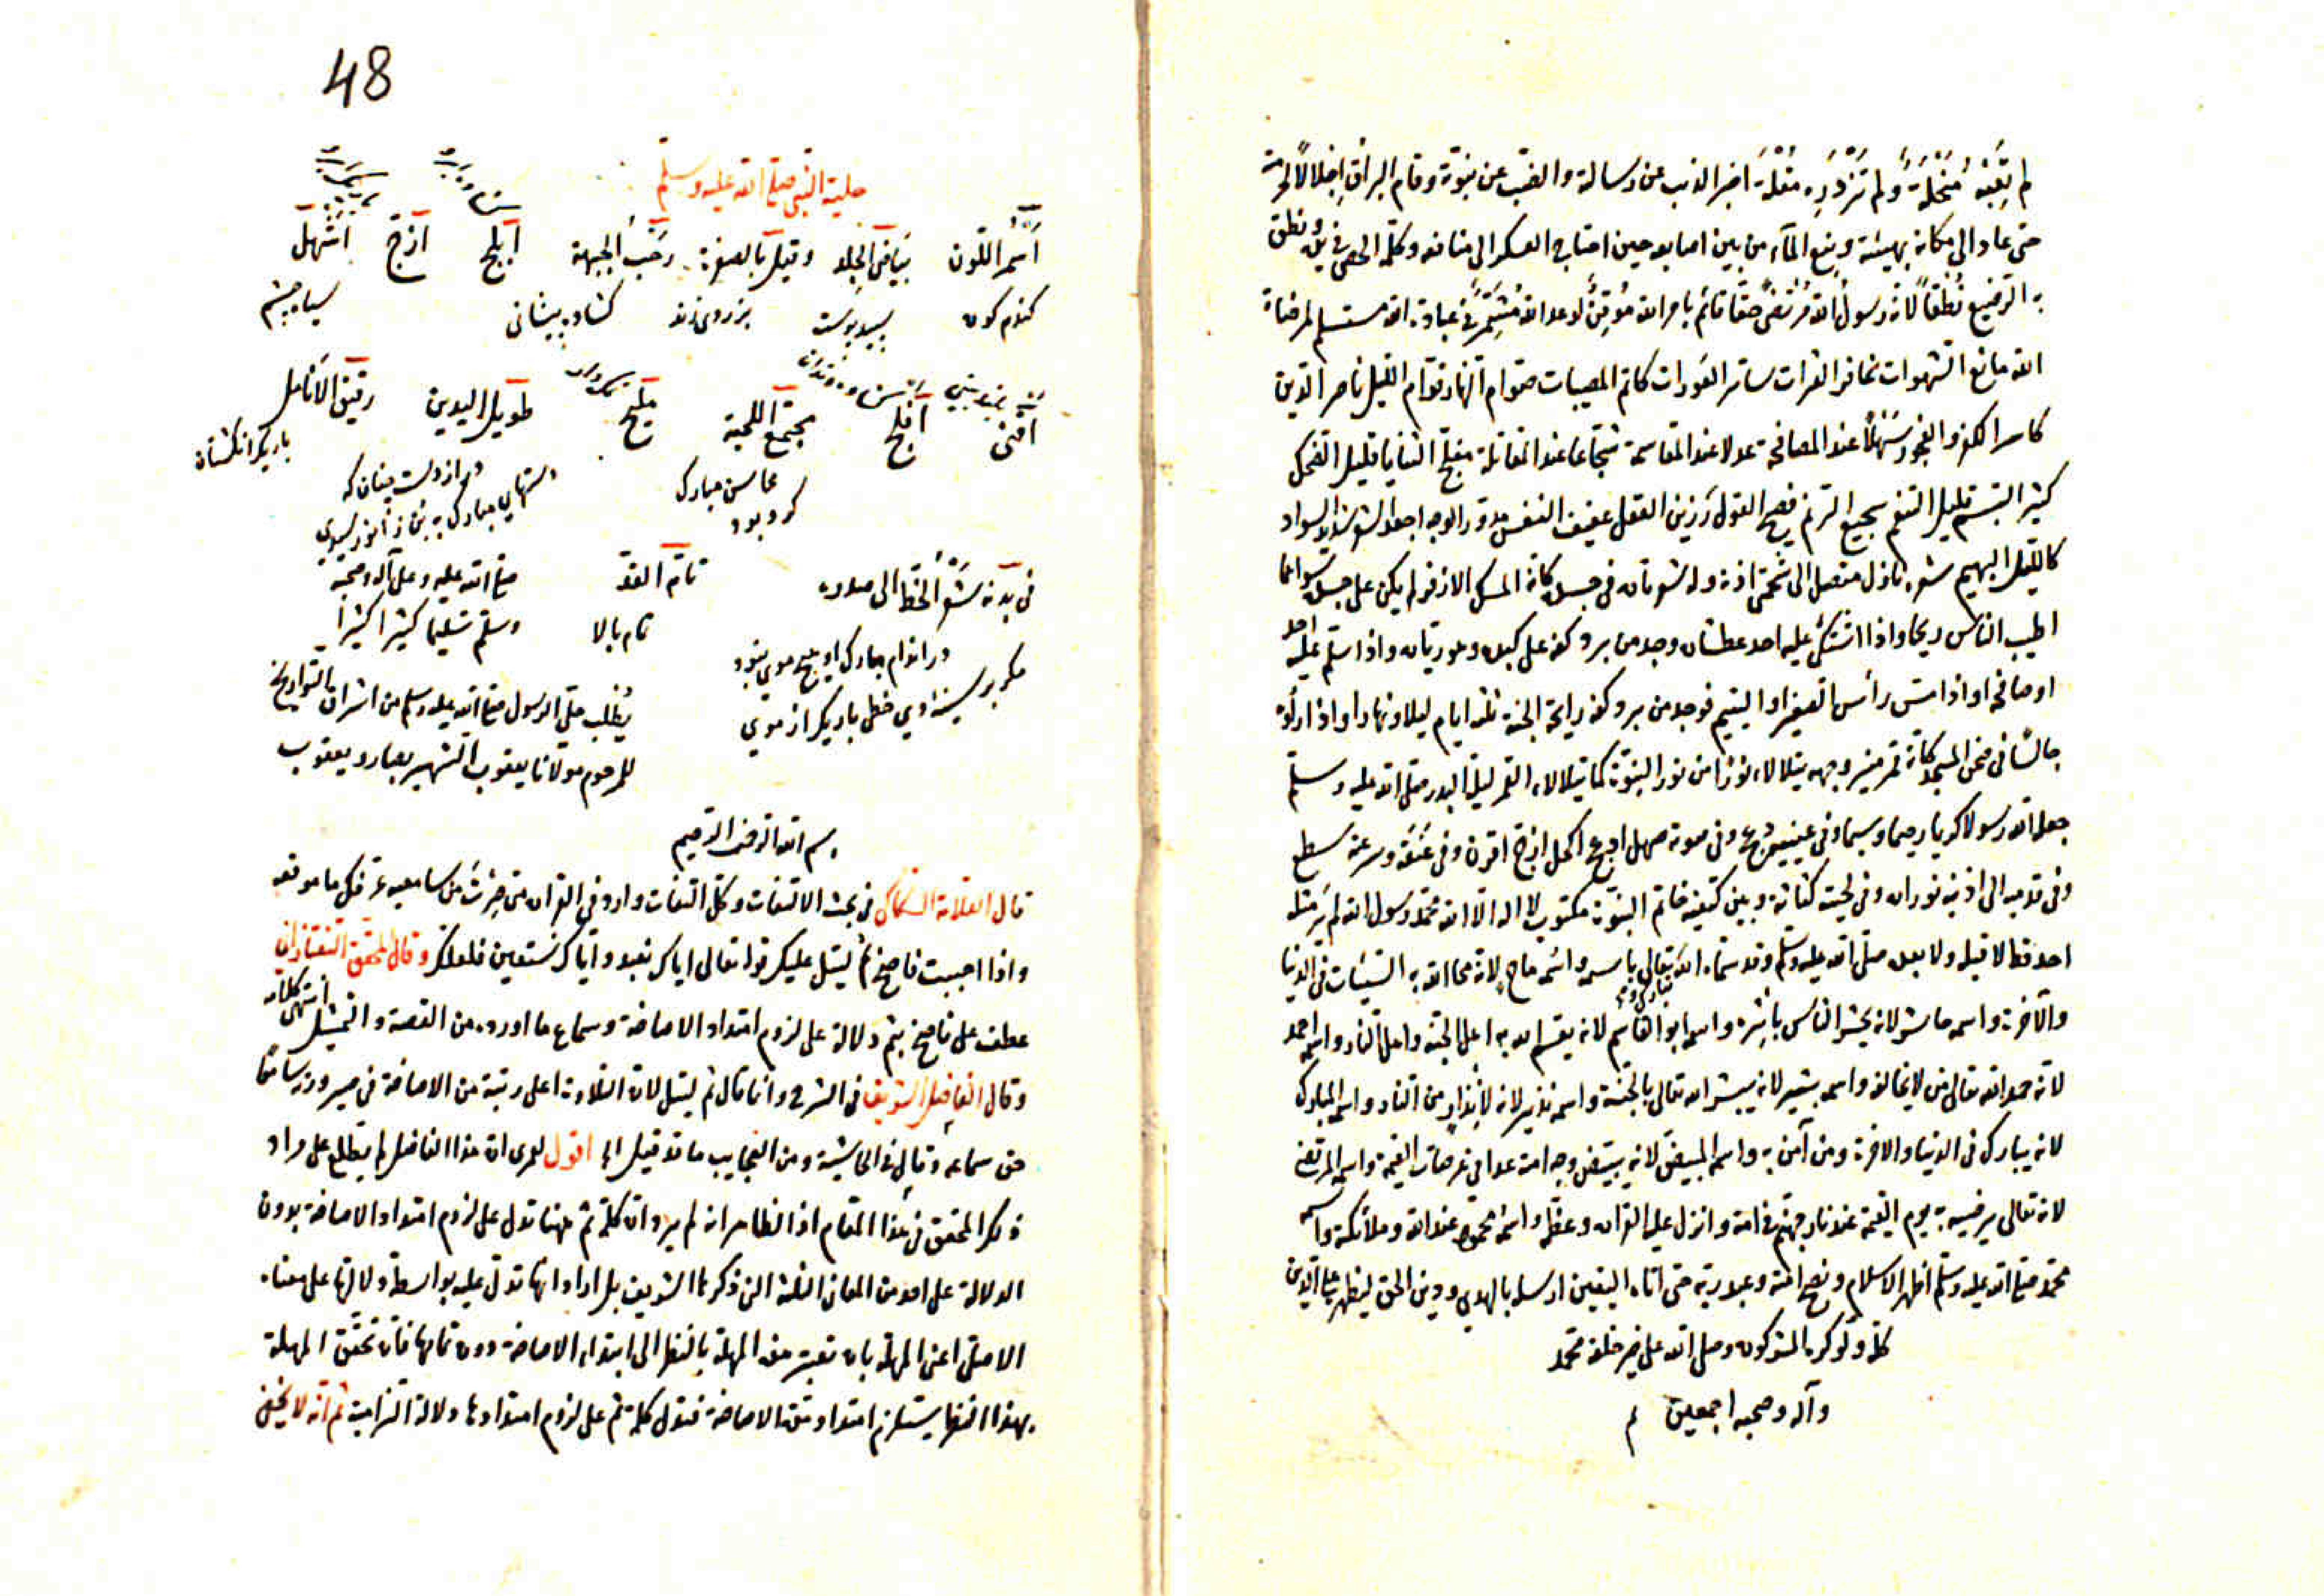 حتى عاد الى مكانه بهيئته ونبع الماء من بين اصابعه حين احتاج العسكر الى منافعه وكلمه الحصى في يده ونطق
به الرضيع نطقا لانه رسول الله مرتضى حقا قائم بامر الله موقن لوعد الله مشمر في عبادة الله مستسلم لمرضاة
الله مانع الشهوات غافر العثرات ساتر العورات كاتم المصيبات صوام النهار قوام الليل ناصر الدين
كاسر الكفر والفجور سهلا عند المصافحة عدلا عند المقاسمة شجاعا عند المقاتلة مفلج الثنايا قليل الضحك
كثير التبسم قليل التنعم فصيح القول رزين العقل عفيف النفس مدور الوجه اجعد الشعر شديد السواد
كالليل البهيم شعره نازل متصل الى شحمتي اذنه وله شعرتان في جسده كانه المسك الاذفر لم يكن على جسده سواهما
اطيب الناس ريحا واذا اشتكى عليه احد عطشان وجد من برد كفه على كبده وهو ريان واذا سلم عليه احد
او صافحه او اذا مس رأس الصغير او اليتيم فوجد من برد كفه رايحة الجنة ثلثة ايام ليلا ونهارا واذا رأوه
جالسا في صحن المسجد كانه قمر منير وجهه يتلالاء نورا من نور النبوة كما يتلالاء القمر ليلة البدر صلى الله عليه وسلم
جعله الله رسولا كريما رحيما وسيما وفي عينيه دعج وفي صوته صهل ادعج اكحل ازج اقرن وفي عنقه وسرعته سطع
وفي قدميه الى اذنيه نوران وفي لحيته كثاثة وبين كتفيه خاتم النبوة مكتوب لا اله الا الله محمد رسول الله لم ير مثله
احد قط لا قبله ولا بعده صلى الله عليه وسلم وقد سماه الله تبارك وتعالى باسمه واسمه ماح لانه محا الله به السيئات في الدنيا
والآخرة واسمه حاشر لانه يحشر الناس باثره واسمه ابو القاسم لانه يقسم الله به اهل الجنة واهل النار واسمه احمد
لانه حمد الله تعالى واسمه بشير لانه يبشر الله تعالى بالجنة واسمه نذير لانه لانذار من النار واسمه المبارك
لانه يبارك في الدنيا والاخرة ومن آمن به واسمه المبيض لانه يبيض وجه امته غدا في عرصات القيمة واسمه المرتضى
لانه تعالى يرضيه به يوم القيمة عند نار جهنم في امته وانزل عليه القران وعظمه واسمه محمود عند الله وملائكته واسمه
محمد صلى الله عليه وسلم اظهر الاسلام ونصح امته وعبد ربه حتى اتاه اليقين ارسله بالهدى ودين الحق ليظهره على الدين
كله ولو كره المشركون وصلى الله على خير خلقه محمد
وآله وصحبه اجمعين م
48
حلية النبي صلى الله عليه وسلم
اسمر اللون بياض الجلد وقيل بالصفرة رحب الجبهة ابلج ازج اشهل
كندم كون سپيد پوست بزردى زند كشاده پيشانى سياه چشم
اقنى افلج مجتمع اللحية مليح طويل اليدين رقيق الانامل
محاسن مبارك دراز دست چنان كه باريك انكشتان
كرد بود دستهاى مبارك
في بدنه شعر الخط الى صدره تام القد صلى الله عليه وعلى آله وصحبه
تمام بالا وسلم تسليما كثيرا كثيرا
در اندام مبارك او هيچ موى نبود
مكر بر سينه وي خطى باريك از موي
يطلب حلى الرسول صلى الله عليه وسلم من اشراق التواريخ
للمرحوم مولانا يعقوب الشهير بقارا يعقوب
بسم الله الرحمن الرحيم
قال العلامة السكاكي في بحث الالتفات وكل التفات وارد في القران متى صرت من سامعيه عرفك ما موقعه
واذا احببت فاصخ ثم ليتل عليك قوله تعالى اياك نعبد واياك نستعين فلعلك وقال المحقق التفتازاني
عطف على فاصخ بثم دلالة على لزوم امتداد الاصاخة وسماع ما اورده من القصة والتمثيل انتهى كلامه
وقال الفاضل الشريف في الشرح وانما قال ثم ليتل لان التلاوة اعلى رتبة من الاصاخة في صيرورته سامعا
حق سماعه وقال في الحاشية ومن العجايب ما قد قيل الى اقول لعمرى ان هذا الفاضل لم يطلع على مراد
ذلك المحقق في هذا المقام اذ الظاهر انه لم يرد ان كلمة ثم ههنا تدل على لزوم امتداد الاصاخة بدون
الدلالة على احد من المعاني الثلثة التي ذكرها الشريف بل اراد انها تدل عليه بواسطة دلالتها على معناه
الاصلى اعنى المهلة بان تعتبر هذه المهلة بالنظر الى ابتداء الاصاخة دون تمامها فان تحقق المهلة
بهذا النظر يستلزم امتداد تلك الاصاخة فتدل كلمة ثم على لزوم امتدادها دلالة التزامية ثم انه لا يخفى